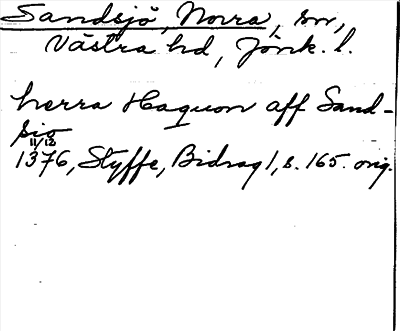 Sandsjö, Norra, sn,
Västra hd, Jönk. l.
herra Haquon aff Sand-
sio
11/12
1376, Styffe, Bidrag 1, s. 165. orig.